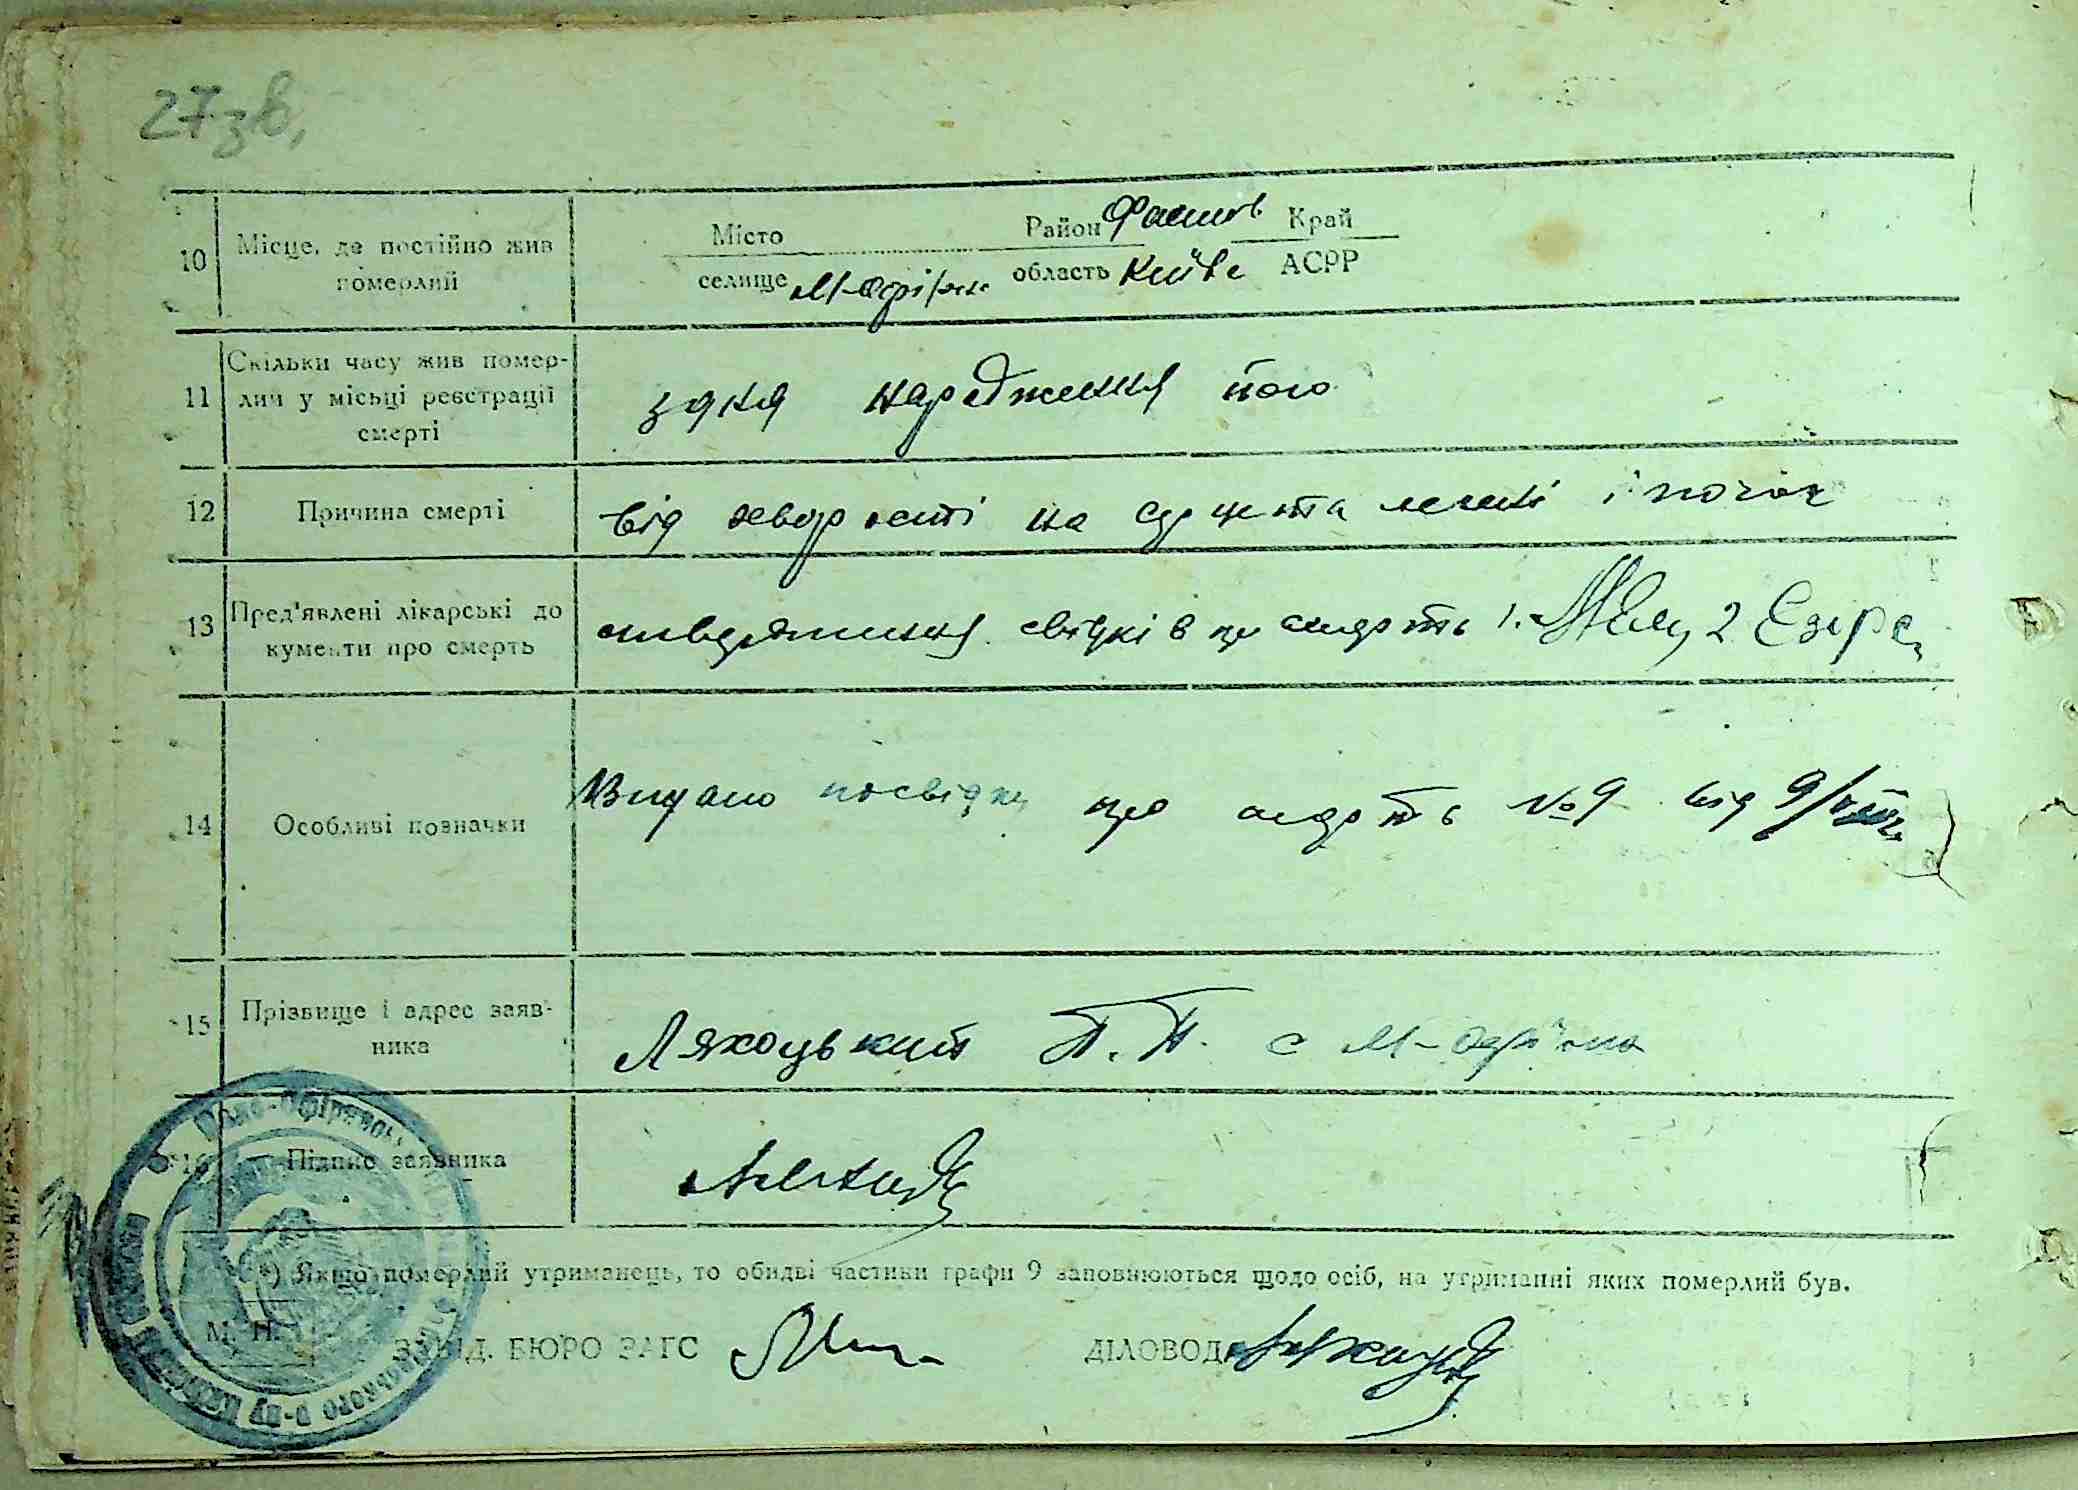 27зв,
10 Місце, де постійно жив померлий
Місто Район Фастів Край
селище М-Офірна область Київс АСРР
11 Скільки часу жив помер-
лий у місьці реєстрації
смерті
з дня народження його
12 Причина смерті
від хворости на серце та легені і почок
13 Пред'явлені лікарські до
кументи про смерть
ствердження свідків про смерть 1. 2
14 Особливі позначки
Видано посвідку про смерть №9 від 9/VIII
15 Прізвище і адрес заяв-
ника
Ляхоцький П. П. с М-Офірна
16 Підпис заявника
*) Якщо померлий утриманець, то обидві частини графи 9 заповнюються щодо осіб, на утриманні яких померлий був.
М. П.
ЗАВІД. БЮРО ЗАГС ДІЛОВОД